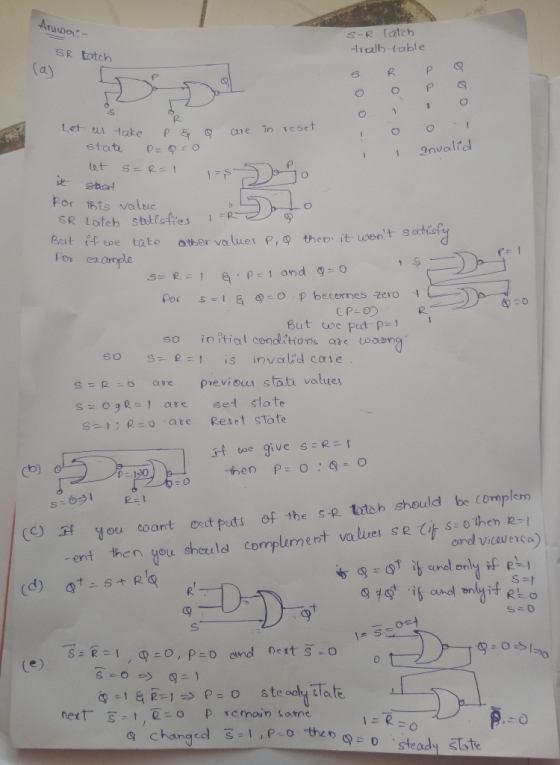 Answer:-
SR Latch
(a)
S
P
R
Q
S-R latch
truth-table
S R P Q
0 0 P Q
0 1 1 0
1 0 0 1
1 1 Invalid
Let us take P & Q are in reset
state P = Q = 0
let S = R = 1
1 = S
P
0
1 = R
Q
0
For this value
SR Latch statisfies
But if we take other values P, Q then it won't satisfy
For example
S = R = 1 & P = 1 and Q = 0
for S = 1 & Q = 0 P becomes zero
(P=0)
But we put P = 1
1 S
P = 1
1
R
1
Q = 0
so initial conditions are wrong
so S = R = 1 is invalid case.
S = R = 0 are previous state values
S = 0 ; R = 1 are set state
S = 1 ; R = 0 are Reset state
(b)
0
S = 0→1
R = 1
Q = 0
If we give S = R = 1
then P = 0 ; Q = 0
(c) If you want outputs of the S-R latch should be complem
-ent then you should complement values SR (if S=0 then R=1
and viceversa)
(d) Q⁺ = S + R'Q
R'
Q
S
Q⁺
Q = Q⁺ if and only if R'=1
S=1
Q ≠ Q⁺ if and only if R'=0
S=0
(e) S̅ = R̅ = 1, Q = 0, P = 0 and next S̅ = 0
S̅ = 0 ⇒ Q = 1
Q = 1 & R̅ = 1 ⇒ P = 0 steady state
next S̅ = 1, R̅ = 0 P remain same
Q changed S̅ = 1, P = 0 then Q = 0 steady state
1 = S̅ = 0 = 1
0
Q = 0 ⇒ 1 ⇒ 0
1
1 = R̅ = 0
P = 0